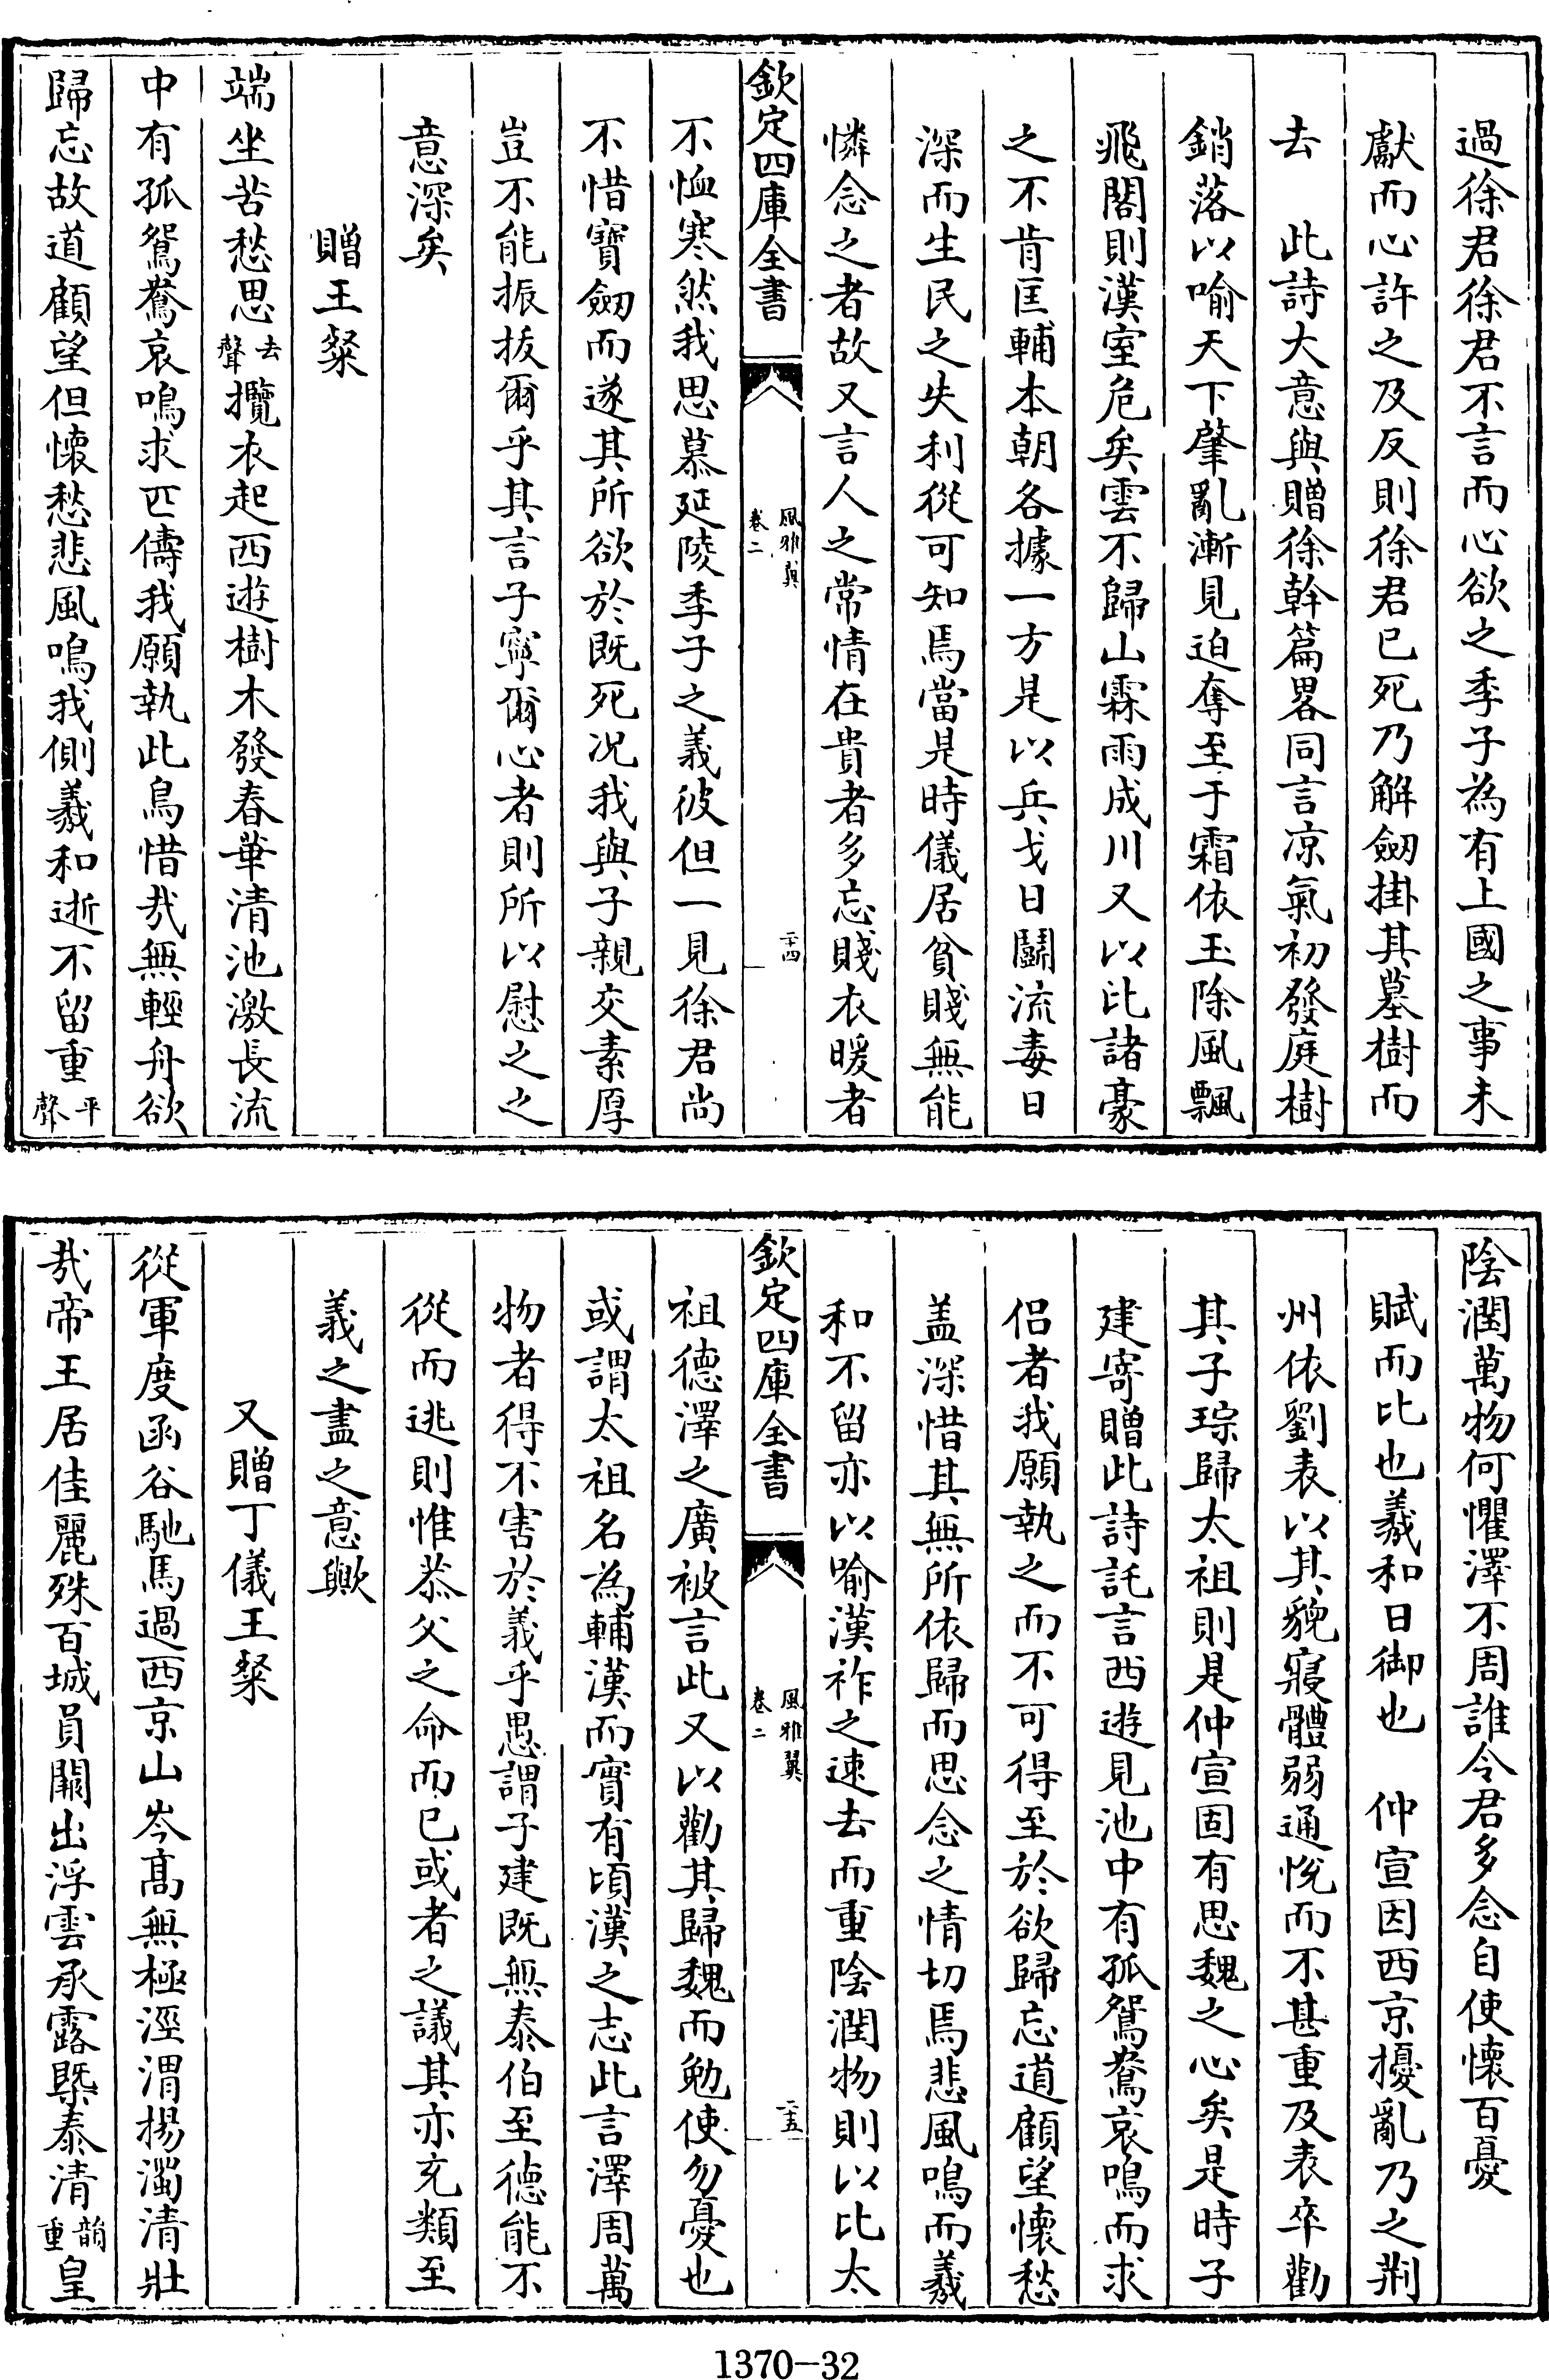 過徐君徐君不言而心欲之季子為有上國之事未
獻而心許之及反則徐君已死乃解劒掛其墓樹而
去　此詩大意與贈徐幹篇畧同言凉氣初發庭樹
銷落以喻天下肇亂漸見迫奪至于霜依玉除風飄
飛閣則漢室危矣雲不歸山霖雨成川又以比諸豪
之不肯匡輔本朝各據一方是以兵戈日鬭流毒日
深而生民之失利從可知焉當是時儀居貧賤無能
憐念之者故又言人之常情在貴者多忘賤衣暖者
欽定四庫全書　風雅翼　卷二　二十四
不恤寒然我思慕延陵季子之義彼但一見徐君尚
不惜寶劒而遂其所欲於既死况我與子親交素厚
豈不能振拔爾乎其言子寧爾心者則所以慰之之
意深矣
贈王粲
端坐苦愁思去聲攬衣起西遊樹木發春華清池激長流
中有孤鴛鴦哀鳴求匹儔我願執此鳥惜哉無輕舟欲
歸忘故道顧望但懷愁悲風鳴我側羲和逝不留重平聲
陰潤萬物何懼澤不周誰令君多念自使懷百憂
賦而比也羲和日御也　仲宣因西京擾亂乃之荆
州依劉表以其貌寢體弱通侻而不甚重及表卒勸
其子琮歸太祖則是仲宣固有思魏之心矣是時子
建寄贈此詩託言西遊見池中有孤鴛鴦哀鳴而求
侣者我願執之而不可得至於欲歸忘道顧望懷愁
盖深惜其無所依歸而思念之情切焉悲風鳴而羲
和不留亦以喻漢祚之速去而重陰潤物則以比太
欽定四庫全書　風雅翼　卷二　二十五
祖德澤之廣被言此又以勸其歸魏而勉使勿憂也
或謂太祖名為輔漢而實有頃漢之志此言澤周萬
物者得不害於義乎愚謂子建既無泰伯至德能不
從而逃則惟恭父之命而已或者之議其亦充類至
義之盡之意歟
又贈丁儀王粲
從軍度函谷馳馬過西京山岑高無極涇渭揚濁清壯
哉帝王居佳麗殊百城員闕出浮雲承露槩泰清韻重皇
1370—32